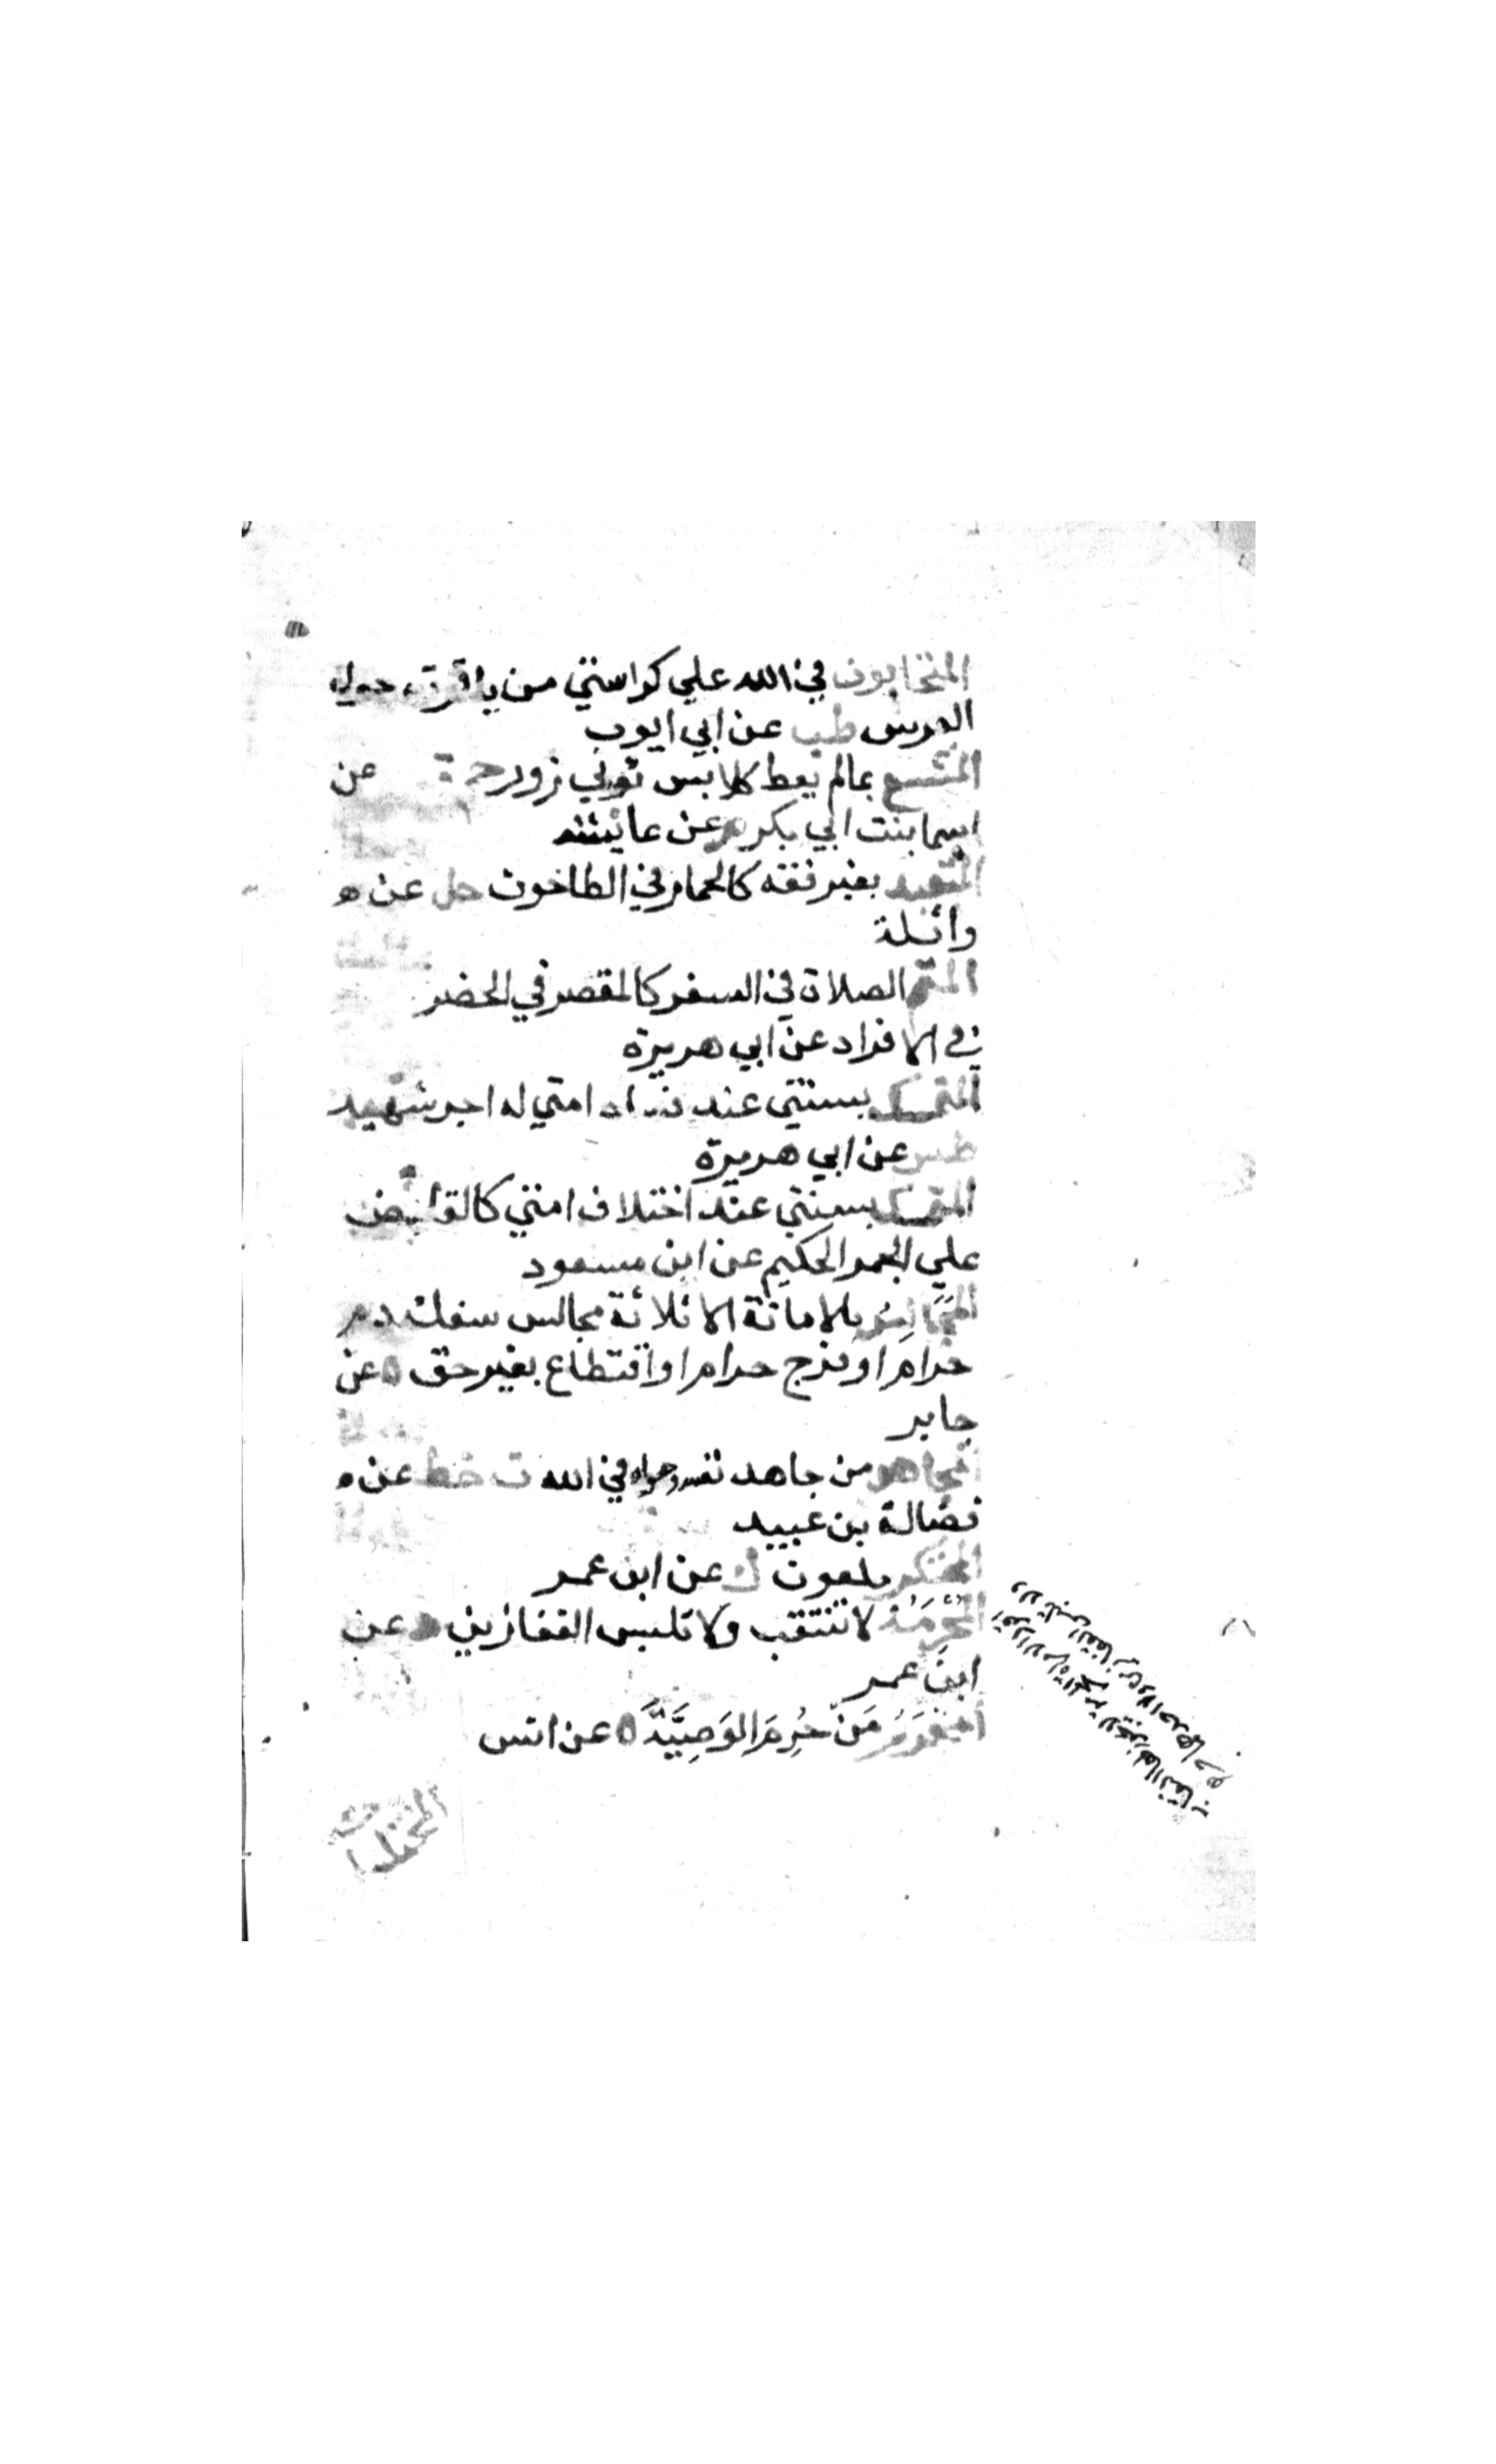 المتحابون في الله علي كراسي من ياقوت حول
العرش طب عن ابي ايوب
المتشبع بمالم يعط كلابس ثوبي زور حم ق عن
اسما بنت ابي بكر م عن عائشه
المتعبد بغير فقه كالحمار في الطاحون حل عن
واثلة
المتم الصلاة في السفر كالمقصر في الحضر
في الافراد عن ابي هريرة
المتمسك بسنتي عند فساد امتي له اجر شهيد
طس عن ابي هريرة
المتمسك بسنتي عند اختلاف امتي كالقابض
علي الجمر الحكيم عن ابن مسعود
المجالس بالامانة الا ثلاثة مجالس سفك دم
حرام او فرج حرام او اقتطاع بغير حق د عن
جابر
المجاهد من جاهد نفسه في الله ت عن
فضالة بن عبيد
المحتكر ملعون ك عن ابن عمر
المُحْرِمَة لا تنتقب ولا تلبس القفازين د عن
ابن عمر
المحروم مَنْ حُرِمَ الوَصِيَّةَ ه عن انس